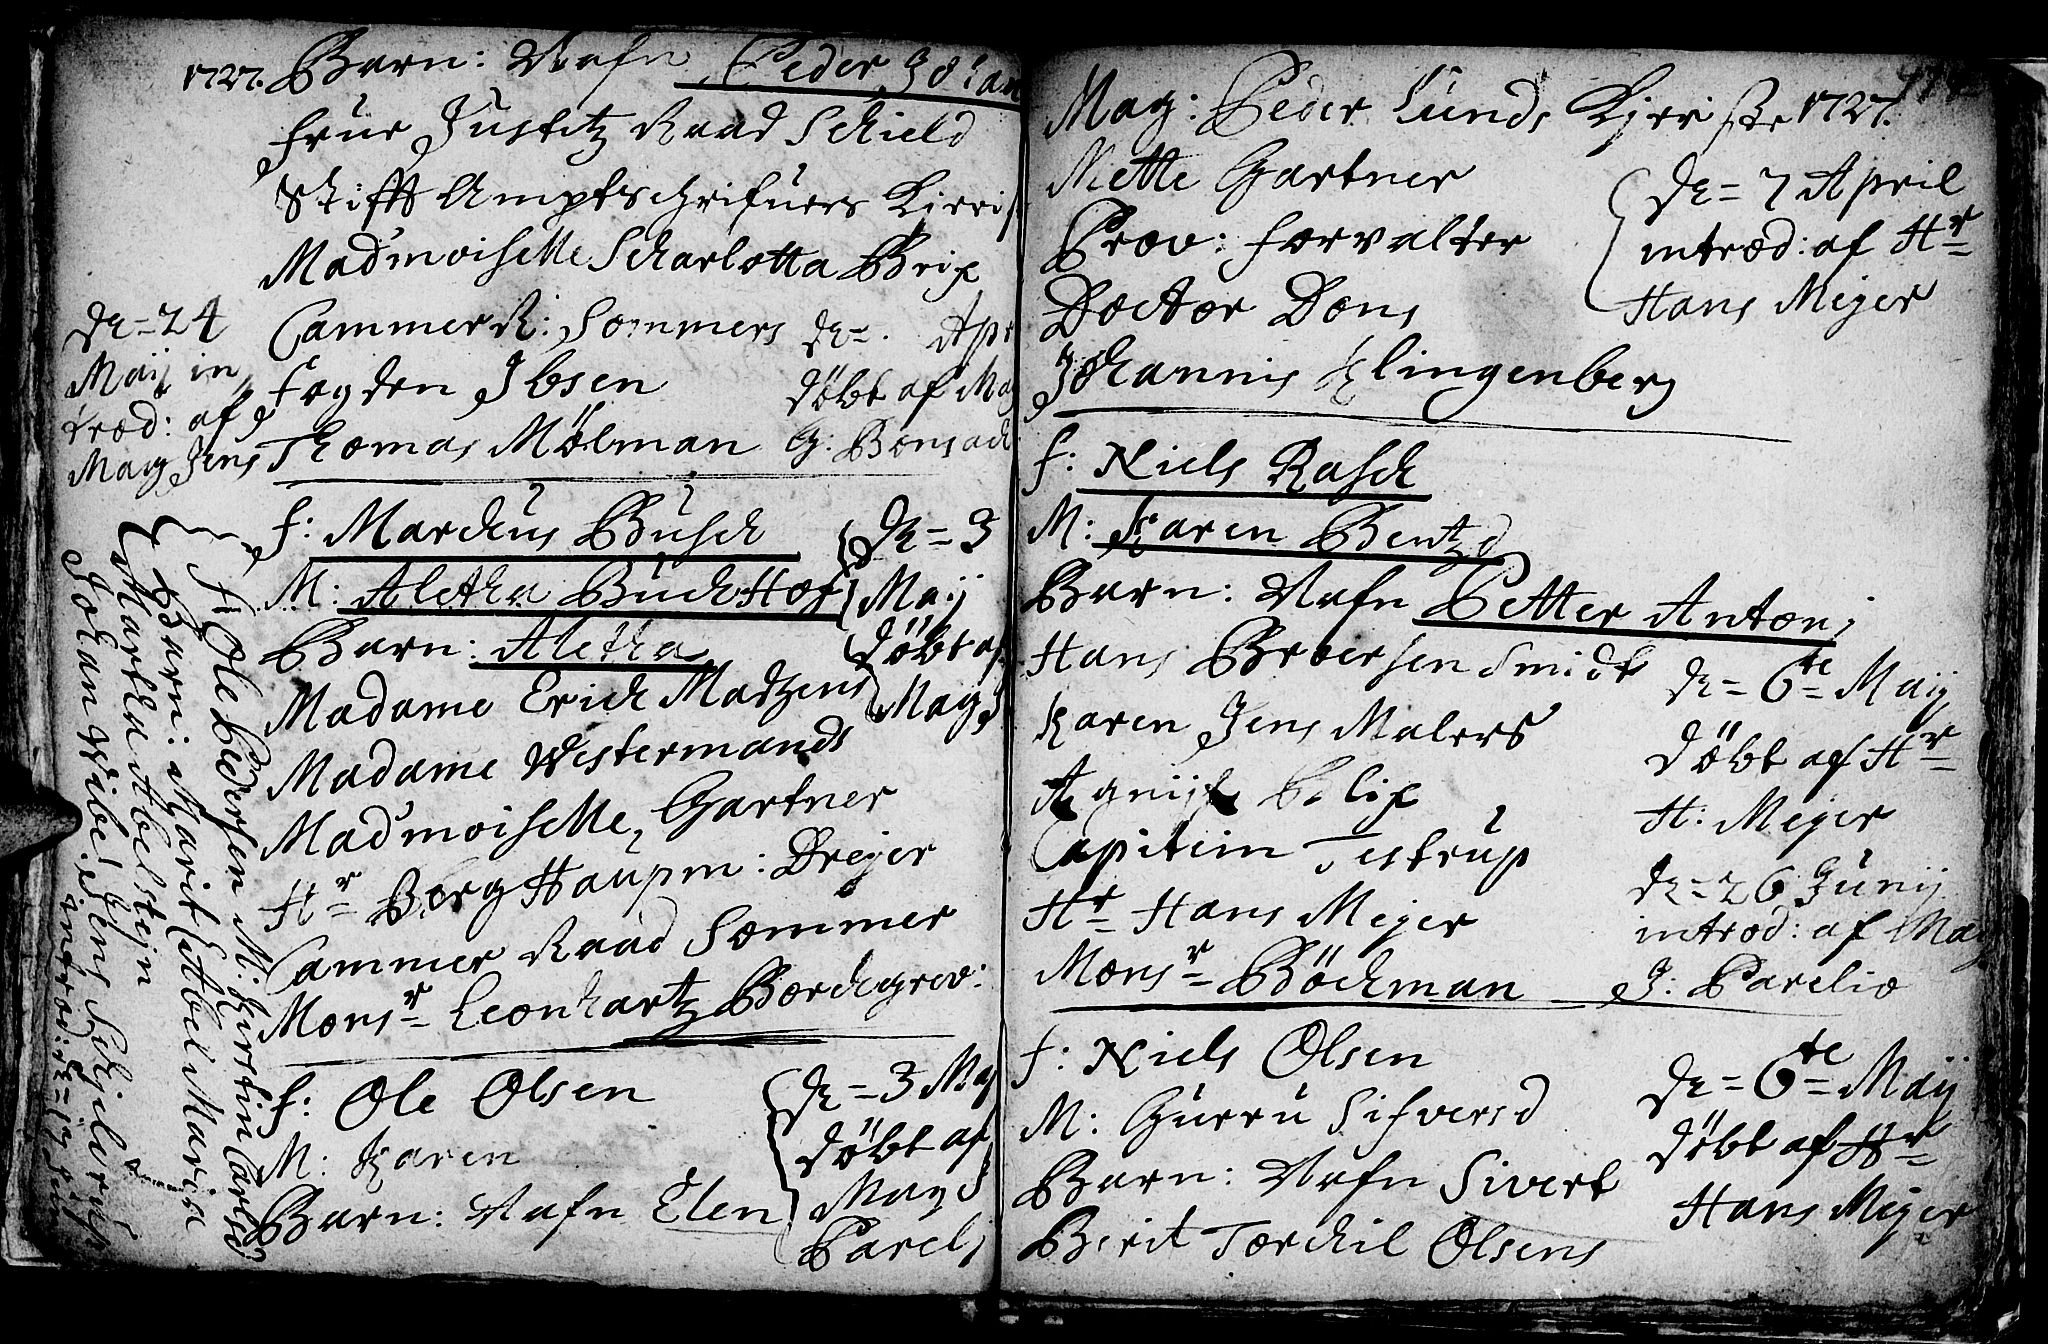 1727. Barn: Nafn Peder Johan
frue Justitz Raad Schield
Stifft Amptschrifuers Kierris
Mad'moiselle Scharlotta Brix
Cammer R: Sommers
Fogden Ibsen
Thomas Mölman
de = 24
Maij in
trod: af
Mag Jens
de = . Apr
döbt af Mag
G: Bonsach
f: Marckus Busch
M: Aletha Buchhof
Barn: Aletha
Madame Erich Matzens
Madame Westermands
Mad'moiselle, Gartner
Hr Berg Haupm: Dreyer
Cammer Raad Sommer
Monsr Leonhartz Borchgrev:
de = 3
Maij
döbt af
Mag J
f: Ole Olsen
M: Karen
Barn: Nafn Elen
de = 3 Maj
döbt af
Mag J
Parels
F: Ole Pedersen M: Kirstin Carlsd
Barn: Marit Abel Maria
Marthe Abelsteyn
Johan Wibe: Jens Schjelerup
introd: de = 19 Juni
Mag: Peder Lunds Kjeriste 1727.
Mette Gartner
Prov: forvalter
Doctor Dons
Johannis Klingenberg
de = 7 April
introd: af Hr
Hans Meyer
f: Niels Rasch
M: Karen Bentzd
Barn: Nafn Petter Antoni
Hans Broersen Smidt
Karen Jens Malers
Capitein Testrup
Hr Hans Meyer
Monsr Böckman
de = 6te Maij
döbt af Hr
H: Meyer
de = 26 Junij
introd: af Mag
J: Parelio
f: Niels Olsen
M: Gurru Sifversd
Barn: Nafn Sivert
Berit Torchil Olsens
de = 6te Maij
döbt af Hr
Hans Meyer